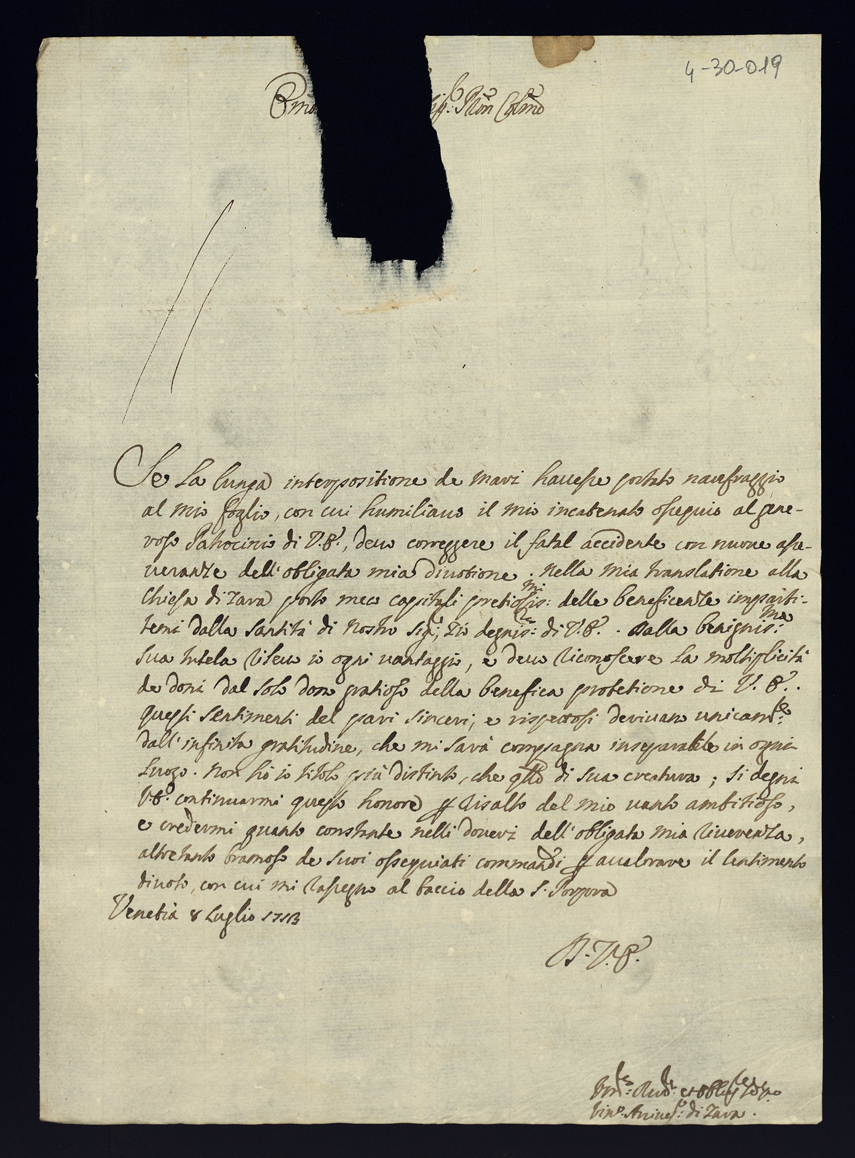 4-30-019
Em̃o
Pñon Colmo
Se La lunga interpositione de mari havesse portato naufraggio
al mio foglio, con cui humiliavo il mio incatenato ossequio al gene-
roso Patrocinio di V.E., devo correggere il fatal accidente con nuove asse-
veranze dell'obligata mia divotione. Nella mia translatione alla
Chiesa di Zara porto meco capitali pretiosis:mi delle beneficenze imparti-
temi dalla Santità di Nostro Sigr:, Zio degnis:mo di V.E. Dalla benignis:ma
sua tutela rilevo io ogni vantaggio, e devo riconoscere la moltiplicità
de doni dal solo don gratioso della benefica protetione di V.E.
Questi sentimenti del pari sinceri, e rispettosi derivano unicamte:
dall'infinita gratitudine, che mi sarà compagna inseparabile in ogni
Luogo. Non hò io titolo più distinto, che qllo di sua creatura; si degni
V.E. continuarmi questo honore p risalto del mio vanto ambitioso,
e credermi quanto constante nelli doveri dell'obligata mia riverenza,
altretanto bramoso de suoi ossequiati commandi p avalorare il sentimento
divoto, con cui mi rassegno al baccio della S. Porpora
Venetia 8 Luglio 1713
D. V. E.
et
Vinco Arcivesco: di Zara.